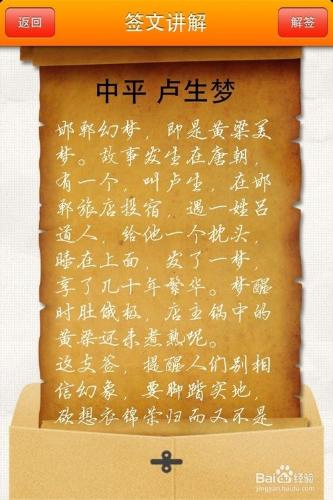 返回
签文讲解
解签
中平 卢生梦
邯郸幻梦，即是黄粱美
梦。故事发生在唐朝，
有一个，叫卢生，在邯
郸旅店投宿，遇一姓吕
道人，给他一个枕头，
睡在上面，发了一梦
享了几十年繁华。梦醒
时肚饿极，店主锅中的
黄粱还未煮熟呢。
这支签，提醒人们别相
信幻象，要脚踏实地，
欲想衣锦荣归而又不是
Baidu经验
jingyan.baidu.com